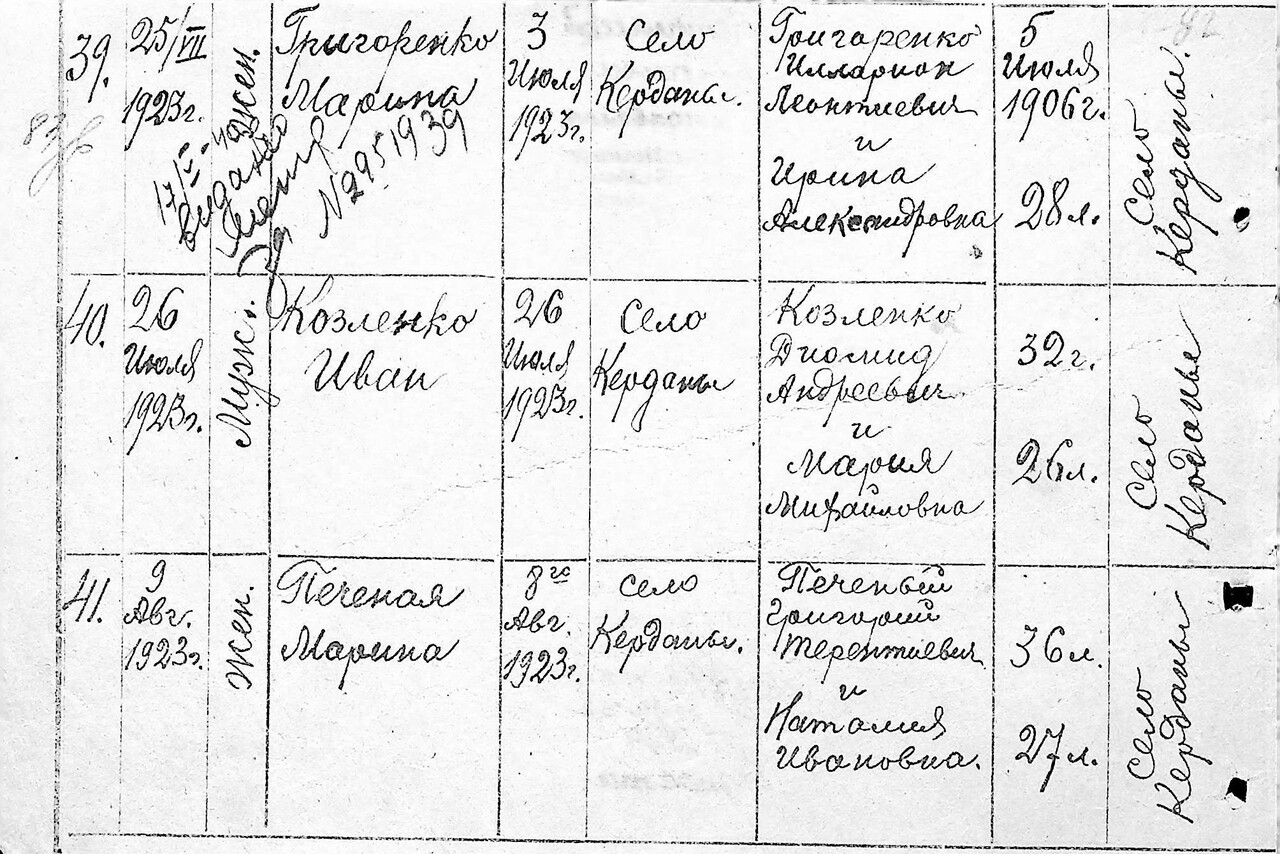 39.
25/VII
1923г.
Жен.
Григоренко
Марина
3
Июля
1923г.
Село
Керданы.
Григаренко
Илларион
Леонтиевич
и
Ирина
Александровна
5
Июля
1906г.
28л.
Село
Керданы.
17/IV-
Видано
N295 1939
40.
26
Июля
1923г.
Муж.
Козленко
Иван
26
Июля
1923г.
Село
Керданы
Козленко
Диомид
Андреевич
и
Мария
Михайловна
32г.
26л.
Село
Керданы
41.
9
Авг.
1923г.
Жен.
Печеная
Марина
8го
Авг.
1923г.
село
Керданы.
Печеный
Григорий
Терентиевич
и
Наталия
Ивановна.
36л.
27л.
Село
Керданы